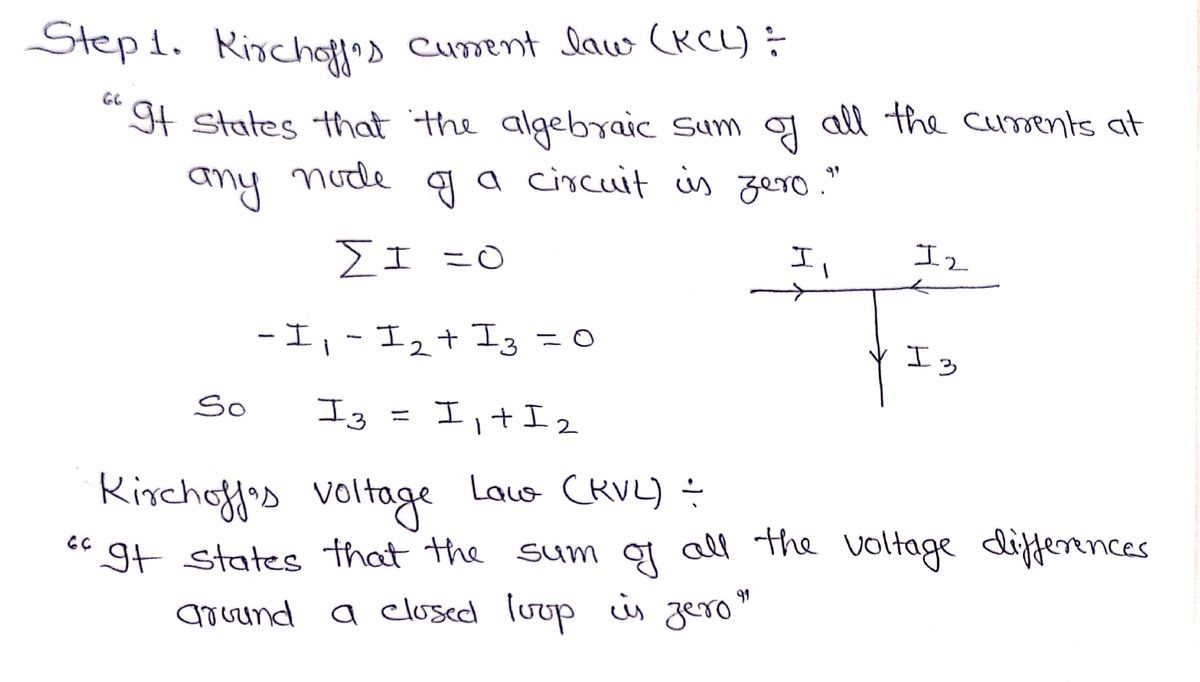 Step 1. Kirchoff's current law (KCL) ÷
“It states that the algebraic sum of all the currents at
any node of a circuit is zero.”
∑I = 0
I₁ I₂
-I₁ - I₂ + I₃ = 0
I₃
So I₃ = I₁ + I₂
Kirchoff's voltage Law (KVL) ÷
“It states that the sum of all the voltage differences
around a closed loop is zero”